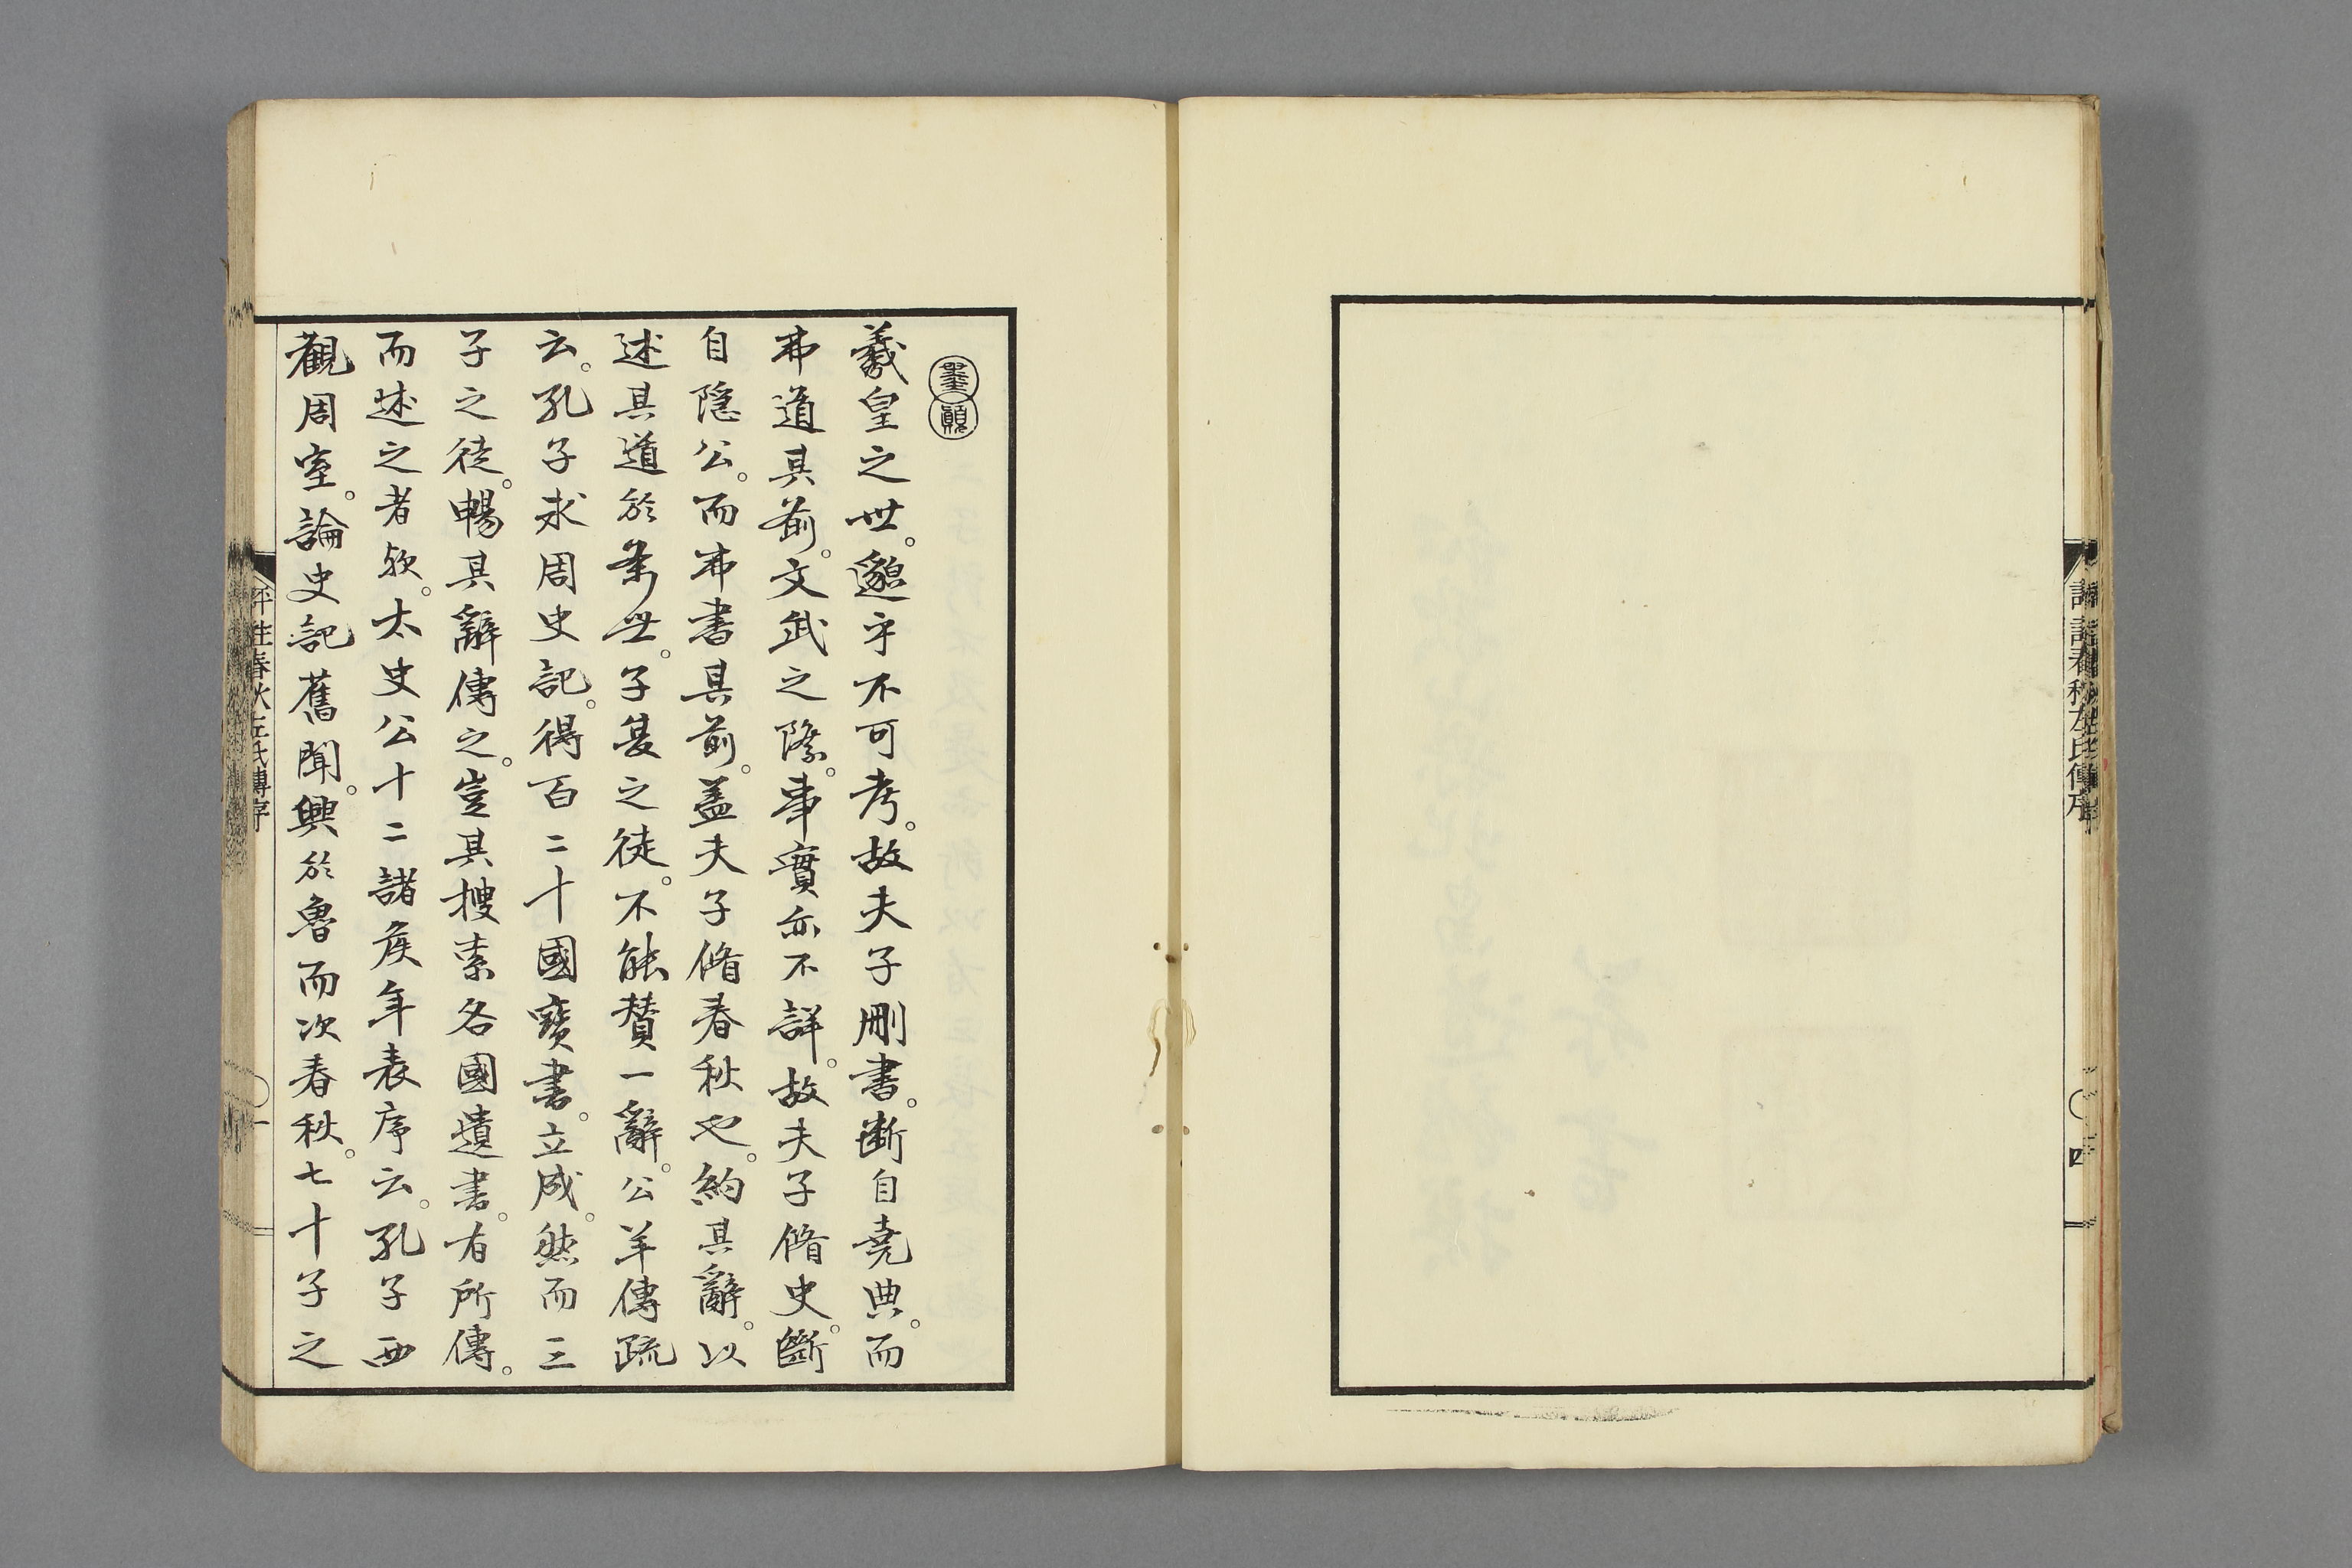 評註春秋左氏傳序
四
羲皇之世。邈乎不可考。故夫子刪書。斷自堯典。而
弗道其前。文武之際。事實亦不詳。故夫子脩史。斷
自隱公。而弗書其前。蓋夫子脩春秋也。約其辭。以
述其道於來世。子夏之徒。不能贊一辭。公羊傳疏
云。孔子求周史記。得百二十國寶書。立成。然而三
子之徒。暢其辭傳之。豈其搜索各國遺書。有所傳。
而述之者歟。太史公十二諸侯年表序云。孔子西
觀周室。論史記舊聞。興於魯而次春秋。七十子之
評註春秋左氏傳序
一